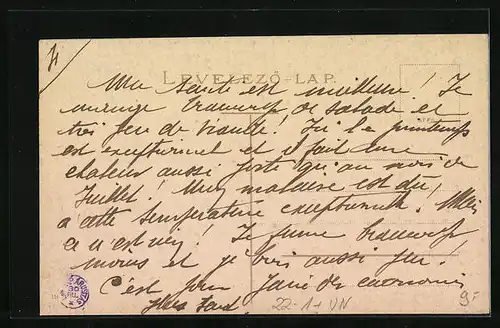 4
LEVELEZŐ-LAP.
Ma santé est meilleure! Je
mange beaucoup de salade et
très peu de viande! Ici le printemps
est exceptionnel et il fait une
chaleur aussi forte qu'au mois de
Juillet! Mon malaise est dû
à cette température exceptionnelle! Mais
ce n'est rien! Je fume beaucoup
moins et je bois aussi peu!
C'est pour faire des économies
plus tard.
22-1+ VN
9F